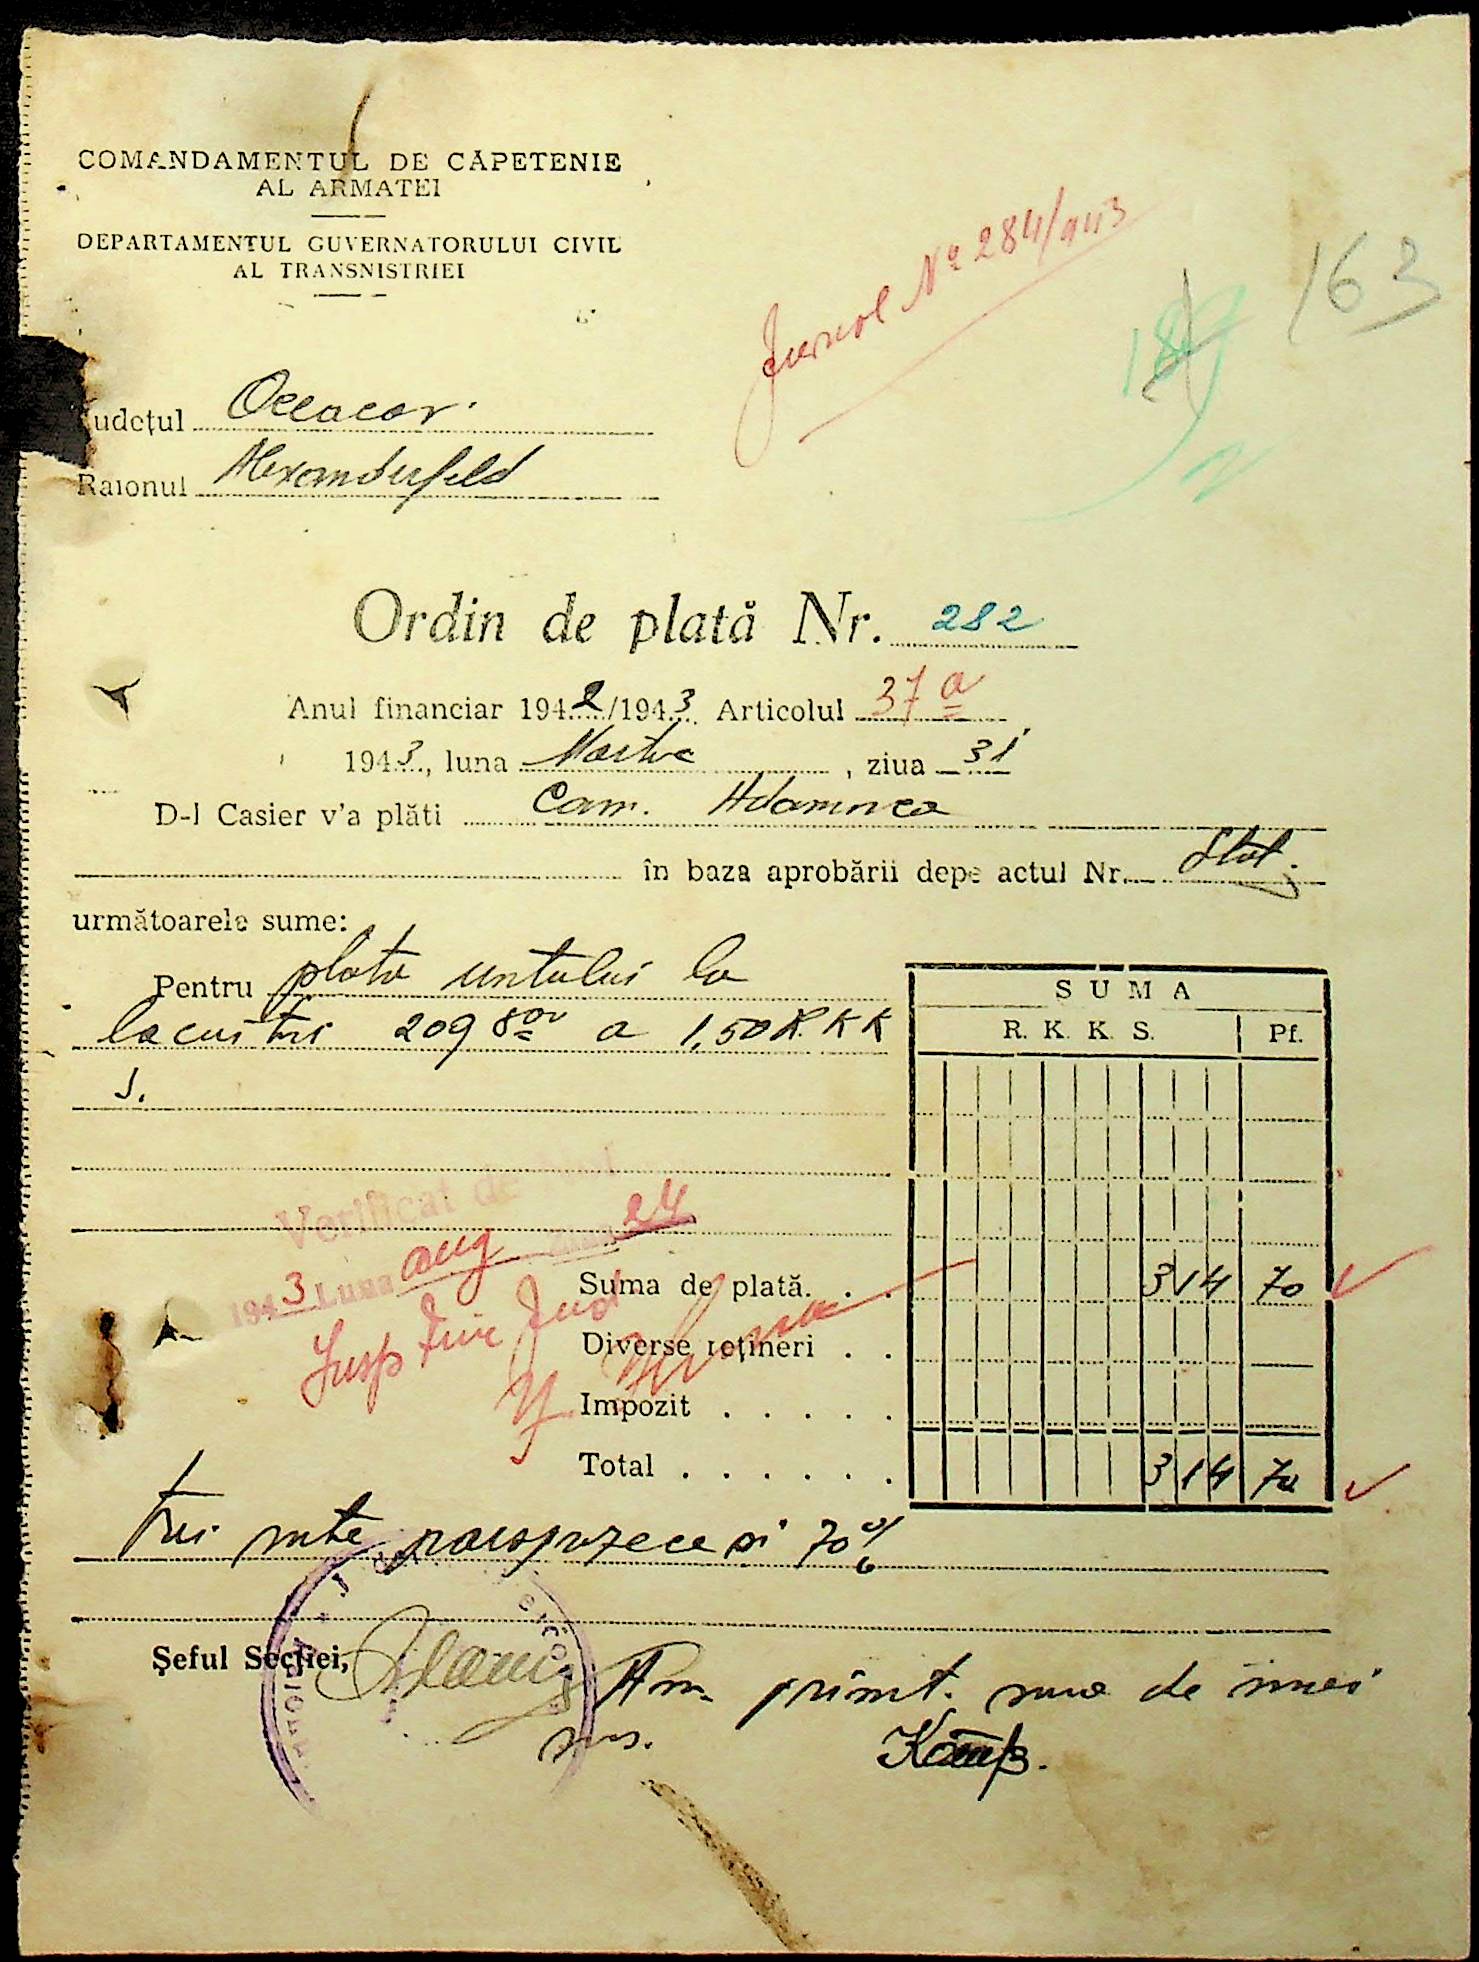 COMANDAMENTUL DE CĂPETENIE
AL ARMATEI
DEPARTAMENTUL GUVERNATORULUI CIVIL
AL TRANSNISTRIEI
Jurnal Nº 284/943
163
Județul Oceacov
Raionul Alexanderfeld
Ordin de plată Nr. 282
Anul financiar 1942/1943 Articolul 37 a
1943, luna Martie, ziua 31
D-l Casier v'a plăti Com. Adamovca
în baza aprobării depe actul Nr. Stat.
următoarele sume:
Pentru plata untului la
lacustri 209 800 a 1,50 R.K.K
S.
SUMA
R. K. K. S. Pf.
Verificat de
1943 Luna aug 24
Insp Fin Jud
Suma de plată. . . 314 70
Diverse rețineri . .
Impozit . . . . .
Total . . . . . . 314 70
Trei sute patrusprezece și 70%
Șeful Secției,
Am primit suma de mai
sus.